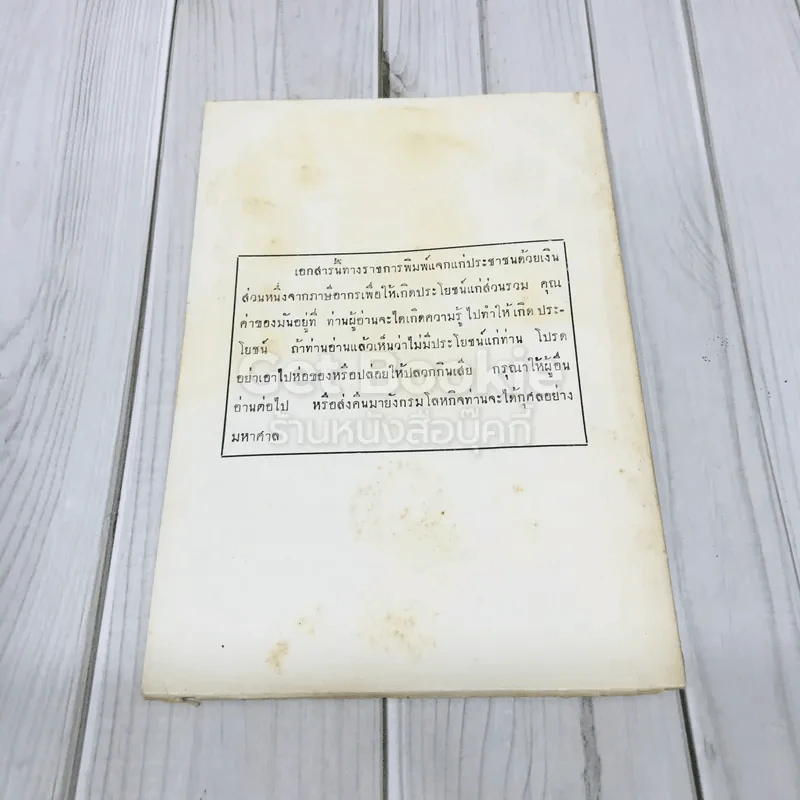 เอกสารนี้ทางราชการพิมพ์แจกแก่ประชาชนด้วยเงิน
ส่วนหนึ่งจากภาษีอากรเพื่อให้เกิดประโยชน์แก่ส่วนรวม คุณ
ค่าของมันอยู่ที่ ท่านผู้อ่านจะได้เกิดความรู้ ไปทำให้ เกิด ประ-
โยชน์ ถ้าท่านอ่านแล้วเห็นว่าไม่มีประโยชน์แก่ท่าน โปรด
อย่าเอาไปห่อของหรือปล่อยให้ปลวกกินเสีย กรุณาให้ผู้อื่น
อ่านต่อไป หรือส่งคืนมายังกรมโลหกิจท่านจะได้กุศลอย่าง
มหาศาล
Get Bookie
ร้านหนังสือบุ๊คกี้